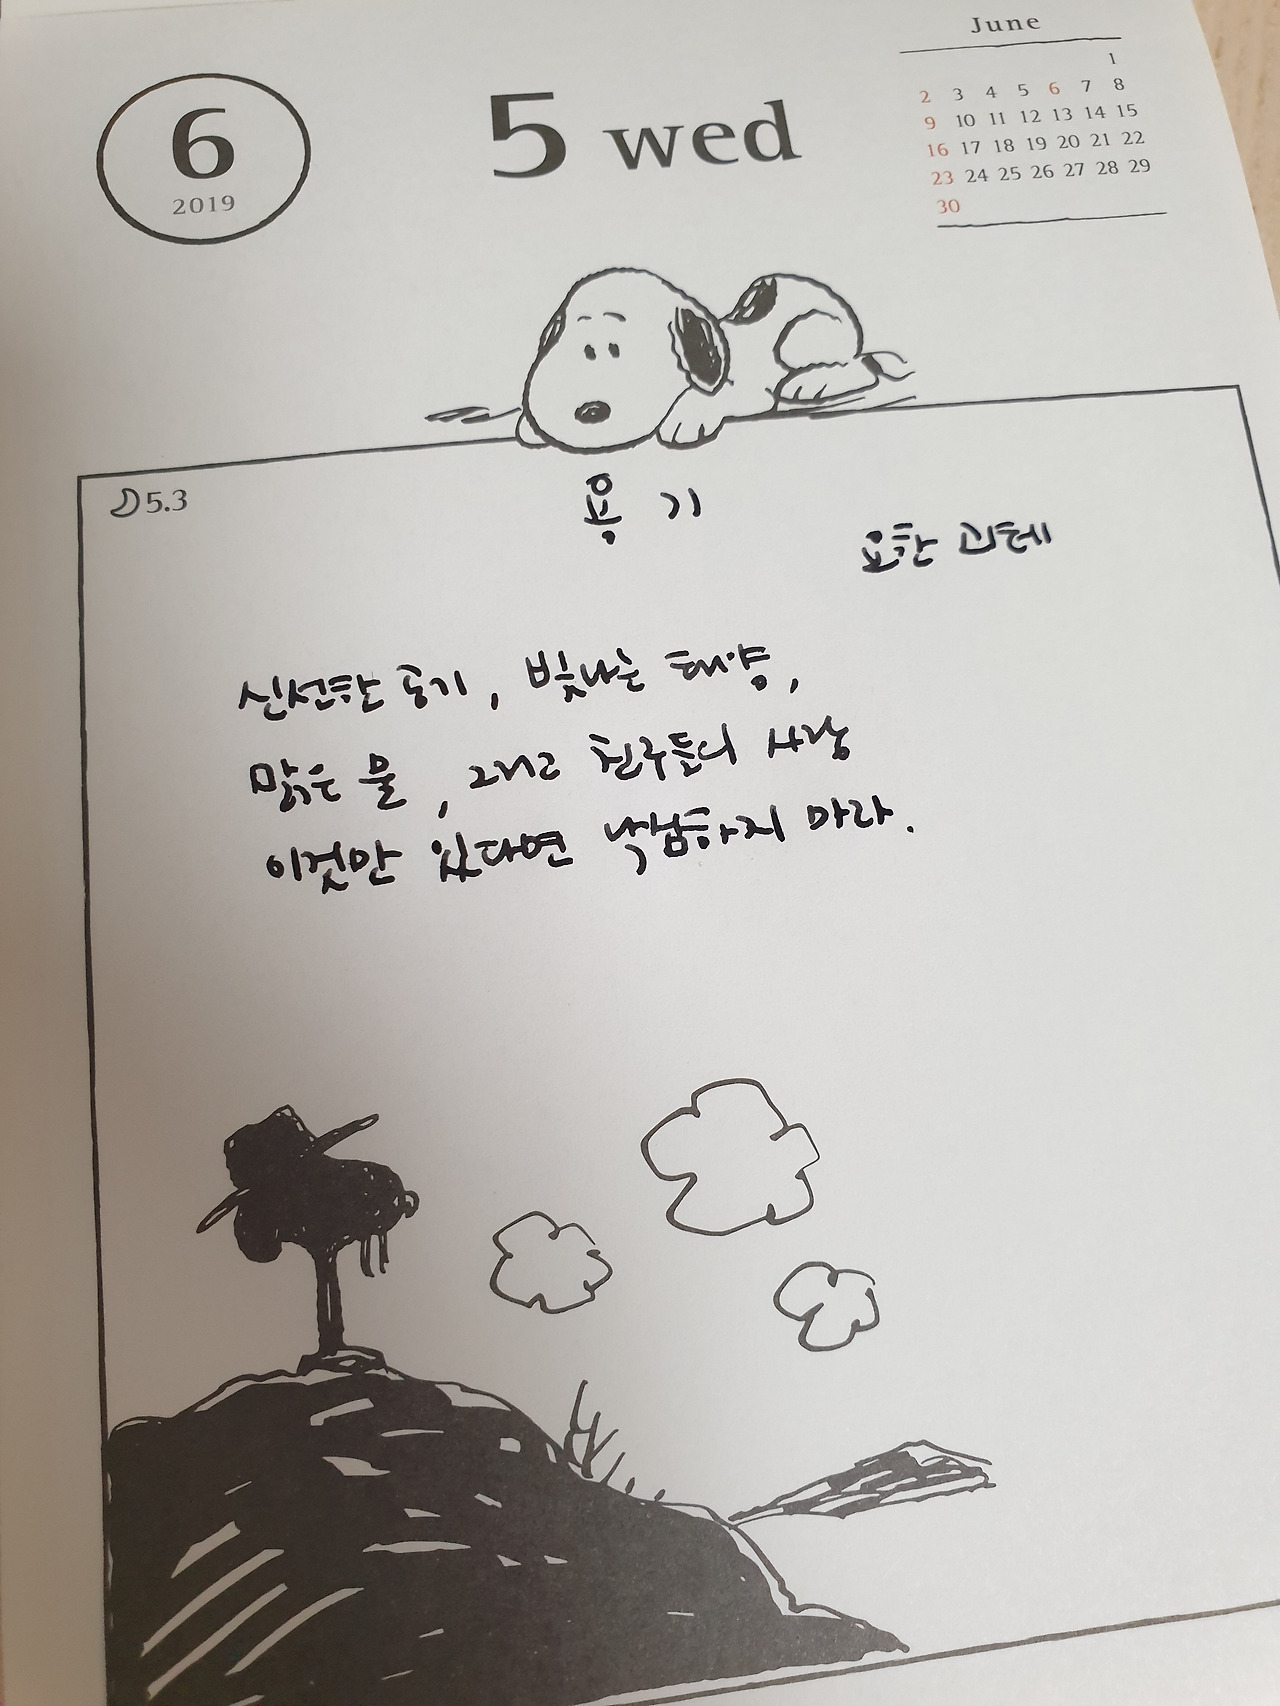 June
1
2 3 4 5 6 7 8
9 10 11 12 13 14 15
16 17 18 19 20 21 22
23 24 25 26 27 28 29
30
6
2019
5 wed
5.3
용기
요한 괴테
신선한 공기, 빛나는 태양,
맑은 물, 그리고 친구들의 사랑
이것만 있다면 낙심하지 마라.